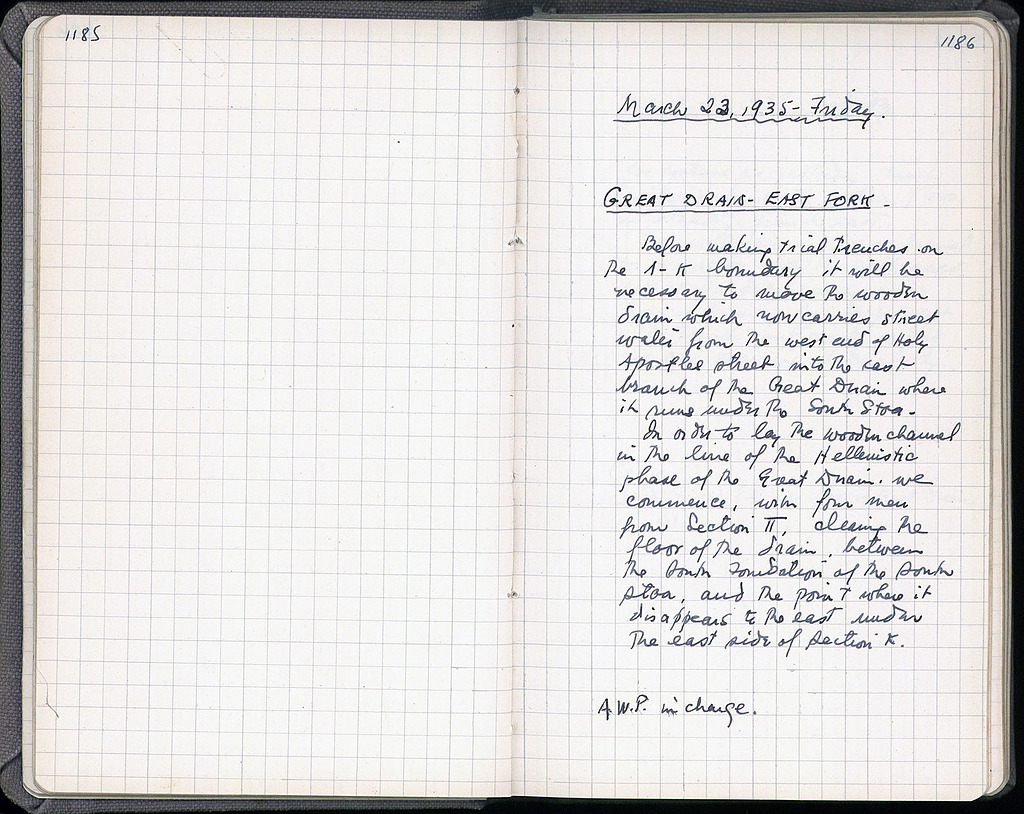 1185
1186
March 23, 1935 - Friday.
GREAT DRAIN - EAST FORK -
Before making trial trenches on
the 1-K boundary it will be
necessary to move the wooden
drain which now carries street
water from the west end of Holy
Apostles street into the east
branch of the Great Drain where
it runs under the South Stoa.
In order to lay the wooden channel
in the line of the Hellenistic
phase of the Great Drain. we
commence, with four men
from Section II, clearing the
floor of the drain, between
the south foundation of the South
Stoa, and the point where it
disappears to the east under
the east side of Section K.
A.W.P. in charge.